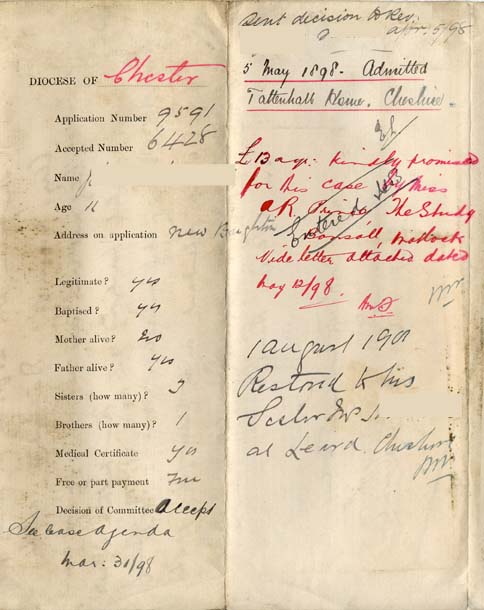 DIOCESE OF Chester
Application Number 9591
Accepted Number 6428
Name J
Age 11
Address on application New
Legitimate? yes
Baptised? yes
Mother alive? No
Father alive? Yes
Sisters (how many)? 3
Brothers (how many)? 1
Medical Certificate Yes
Free or part payment Free
Decision of Committee Accept
See Case Agenda
Mar: 31/98
Sent decision to Rev.
Apr. 5/98
5 May 1898 - Admitted
Tattenhall Home. Cheshire.
£13 a yr: kindly promised
for this case by Miss
The Study
Bonsall, Matlock
Vide letter attached dated
May 12/98.
Entered
1 August 1901
Restored to his
Sister Mrs J.
at Cheshire